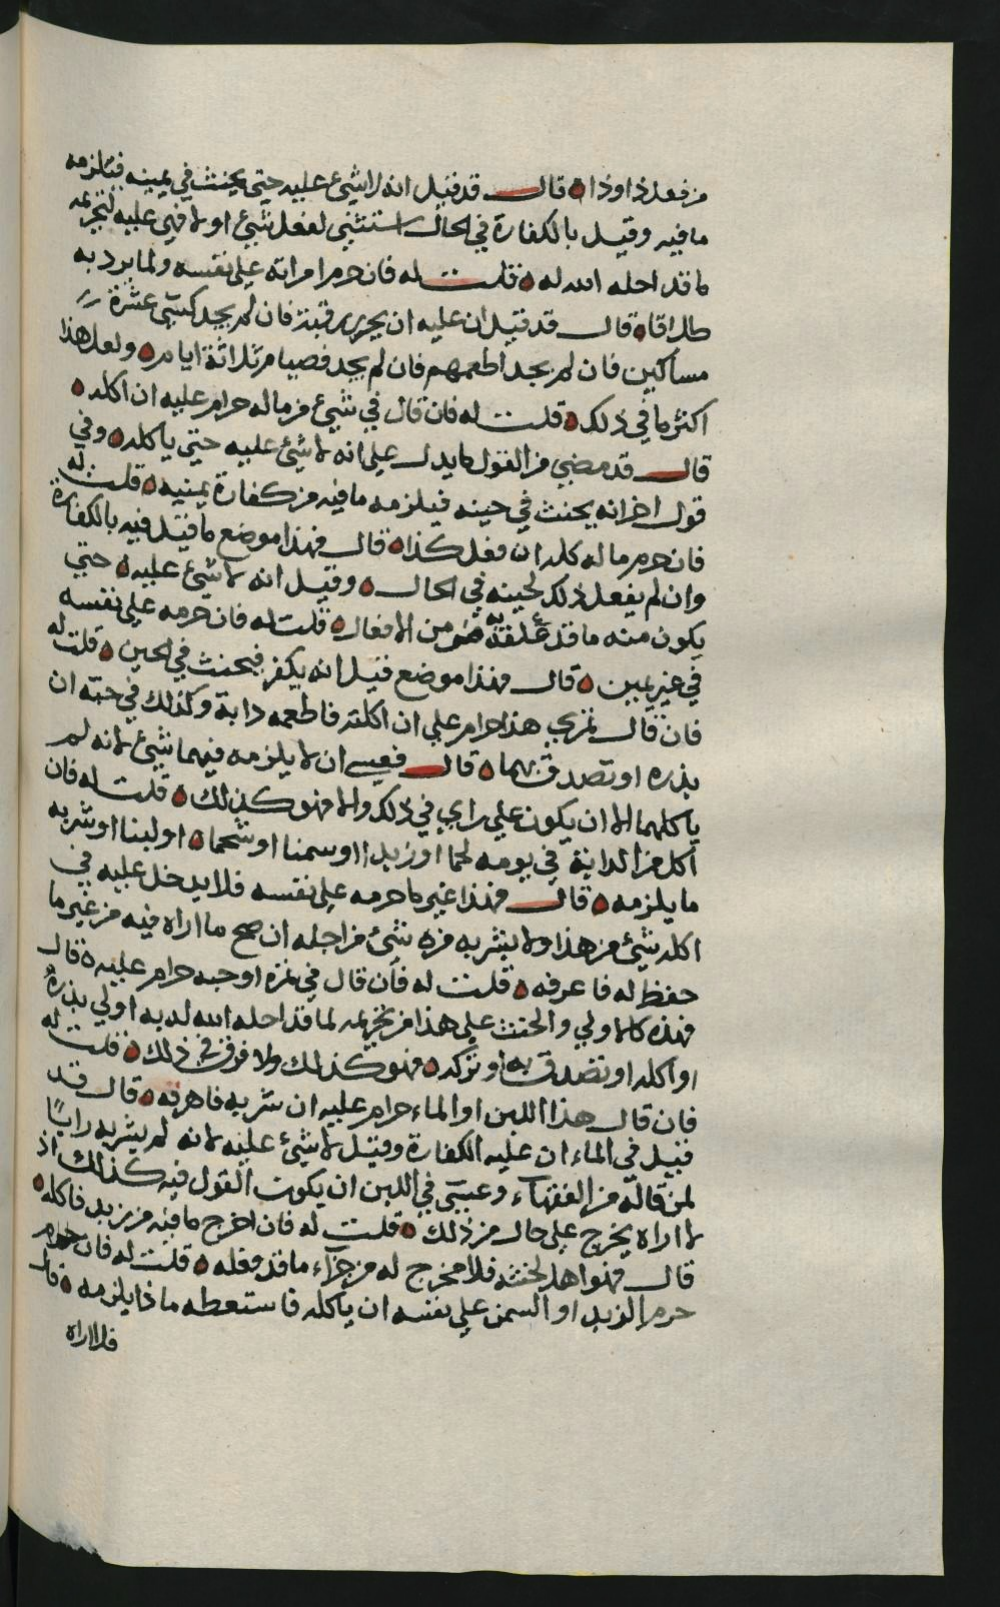 من فعل ذا وذا ه قال قد قيل انه لا شيء عليه حتى يحنث في يمينه فيلزمه
ما فيه وقيل بالكفارة في الحال استثنى لفعل شيء او لا فهي عليه لتحريمه
ما قد احله الله له ه قلت له فان حرم امراته على نفسه ولما يرد به
طلاقا ه قال قد قيل ان عليه ان يحرر رقبة فان لم يجد كسى عشرة
مساكين فان لم يجد اطعمهم فان لم يجد فصيام ثلاثة ايام ه ولعل هذا
اكثر ما في ذلك ه قلت له فان قال في شيء من ماله حرام عليه ان اكله ه
قال قد مضى من القول ما يدل على انه لا شيء عليه حتى ياكله ه وفي
قول اخر انه يحنث في حينه فيلزمه ما فيه من كفارة يمينه ه قلت له
فان حرم ماله كله ان فعل كذا ه قال فهذا موضع ما قيل فيه بالكفارة
وان لم يفعل ذلك لحينه في الحال ه وقيل انه لا شيء عليه ه حتى
يكون منه ما قد علقه به من الافعال ه قلت له فان حرمه على نفسه
في غير يمين ه قال فهذا موضع قيل انه يكفر فيحنث في الحين ه قلت له
فان قال تمري هذا حرام علي ان اكلته فاطعمه دابة وكذلك في حبه ان
بذره او تصدق بهما ه قال فعسى ان لا يلزمه فيهما شيء لانه لم
ياكلهما الا ان يكون على راي في ذلك والا فهو كذلك ه قلت له فان
اكل من الدابة في يومه لحما او زبدا او سمنا او شحما ه او لبنا او شربه
ما يلزمه ه قال فهذا غير ما حرمه على نفسه فلا يدخل عليه في
اكله شيء من هذا ولا بشربه مزه شيء من اجله ان صح ما اراه فيه من غير ما
حفظ له فاعرفه ه قلت له فان قال في تمره او حبه حرام عليه ه قال
فهذه كالاولى والحنث على هذا من تحريمه لما قد احله الله له به اولى بذره
او اكله او تصدق به او تركه ه فهو كذلك ولا فرق في ذلك ه قلت له
فان قال هذا اللبن او الماء حرام عليه ان شربه فاهرقه ه قال قد
قيل في الماء ان عليه الكفارة وقيل لا شيء عليه لانه لم يشربه رايا
لمن قاله من الفقهاء وعسى في اللبن ان يكون القول فيه كذلك اذ
لا اراه يخرج على حال من ذلك ه قلت له فان اخرج ما فيه من زبد فاكله ه
قال فهو اهل لحنثه فلا مخرج له من جزاء ما قد فعله ه قلت له فان
حرم الزبد او السمن على نفسه ان ياكله فاستعطه ماذا يلزمه ه قال
فلا اراه